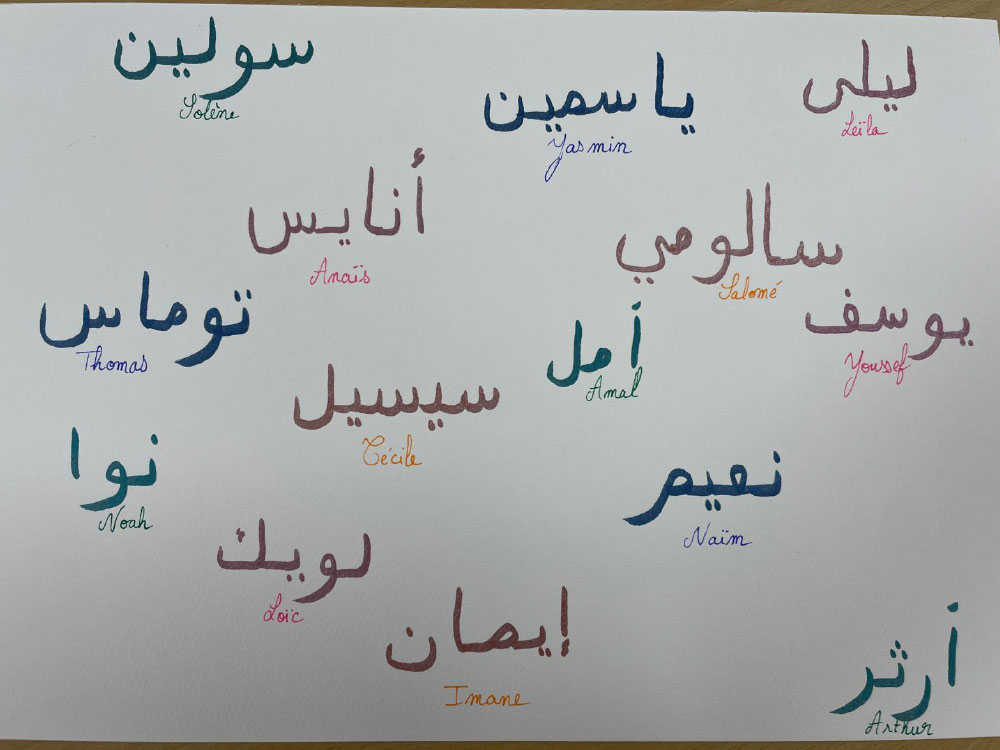 سولين
Solène
ياسمين
Yasmin
ليلى
Leïla
أنايس
Anaïs
سالومي
Salomé
توماس
Thomas
أمل
Amal
يوسف
Youssef
سيسيل
Cécile
نوا
Noah
نعيم
Naïm
لويك
Loïc
إيمان
Imane
أرثر
Arthur